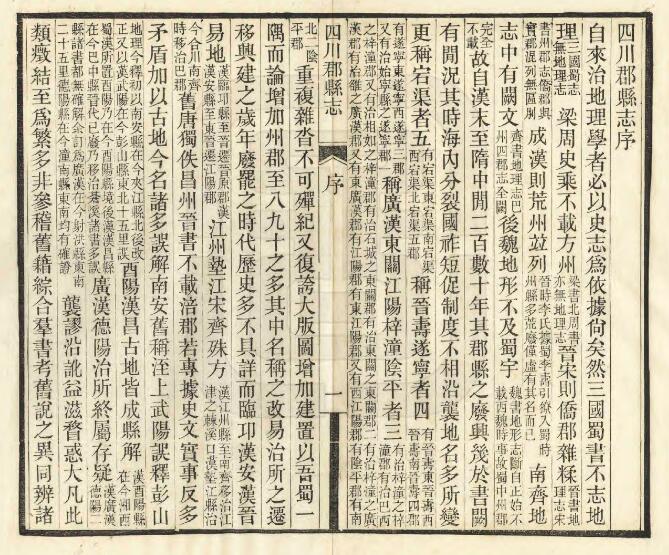 四川郡縣志序
自來治地理學者必以史志爲依據尙矣然三國蜀書不志地
理三國蜀志無地理志梁周史乘不載方州梁書北周書亦無地理志晉宋則僑郡雜糅晉書地理志宋
書州郡志僑郡與實郡混列無區別成漢則荒州竝列晉時李氏據蜀李壽引獠入蜀時州縣多荒廢僅虛有其名而已南齊地
志中有闕文齊書地理志巴州四郡志全闕後魏地形不及蜀宇魏書地形志斷自正始不載西魏時事故蜀中州郡
完全不載故自漢末至隋中閒二百數十年其郡縣之廢興幾於書闕
有閒況其時海內分裂國祚短促制度不相沿襲地名多所變
更稱宕渠者五有宕渠東宕渠南宕渠西宕渠北宕渠五郡稱晉壽遂寧者四有晉壽東晉壽西晉壽南晉壽四郡
有遂寧東遂寧西遂寧三郡又有治始寧縣之遂寧郡稱廣漢東關江陽梓潼陰平者三有治梓潼之梓潼郡有治巴西
之梓潼郡又有治相如之梓潼郡有治石城之東關郡有治東關之東關郡二有治梓潼之廣漢郡有治雒之廣漢郡又有東廣漢郡有江陽郡又有東江陽郡又有西江陽郡有陰平郡有南
四川郡縣志 序 一
北陰平郡重複雜沓不可殫紀又復誇大版圖增加建置以吾蜀一
隅而論增加州郡至八九十之多其中名稱之改易治所之遷
移興建之歲年廢罷之時代歷史多不具詳而臨邛漢安漢晉
易地漢臨邛縣至晉遷晉原郡漢漢安縣至東晉遷江陽郡江州墊江宋齊殊方漢江州縣至南齊移治江津之僰溪口漢墊江縣治
今合川南齊時移治巴郡舊唐獨佚昌州晉書不載涪郡若專據史文實事反多
矛盾加以古地今名諸多誤解南安舊稱洷上武陽誤釋彭山
地理今釋初以南安縣在今夾江縣北後改正又以漢武陽在今彭山縣東北十五里誤酉陽漢昌古地皆成縣解漢酉陽縣在今湘西
蜀漢所置酉陽乃在今酉陽縣境後漢漢昌縣在今巴中縣晉代已廢乃移治巷溪諸書多誤廣漢德陽治所終屬存疑漢廣漢德陽二
縣諸書都無確解余訂爲廣漢在今射洪縣東南二十五里德陽縣在今潼南縣東南均有確證龔謬沿訛益滋瞀惑大凡此
類癥結至爲繁多非參稽舊籍綜合羣書考舊說之異同辨諸